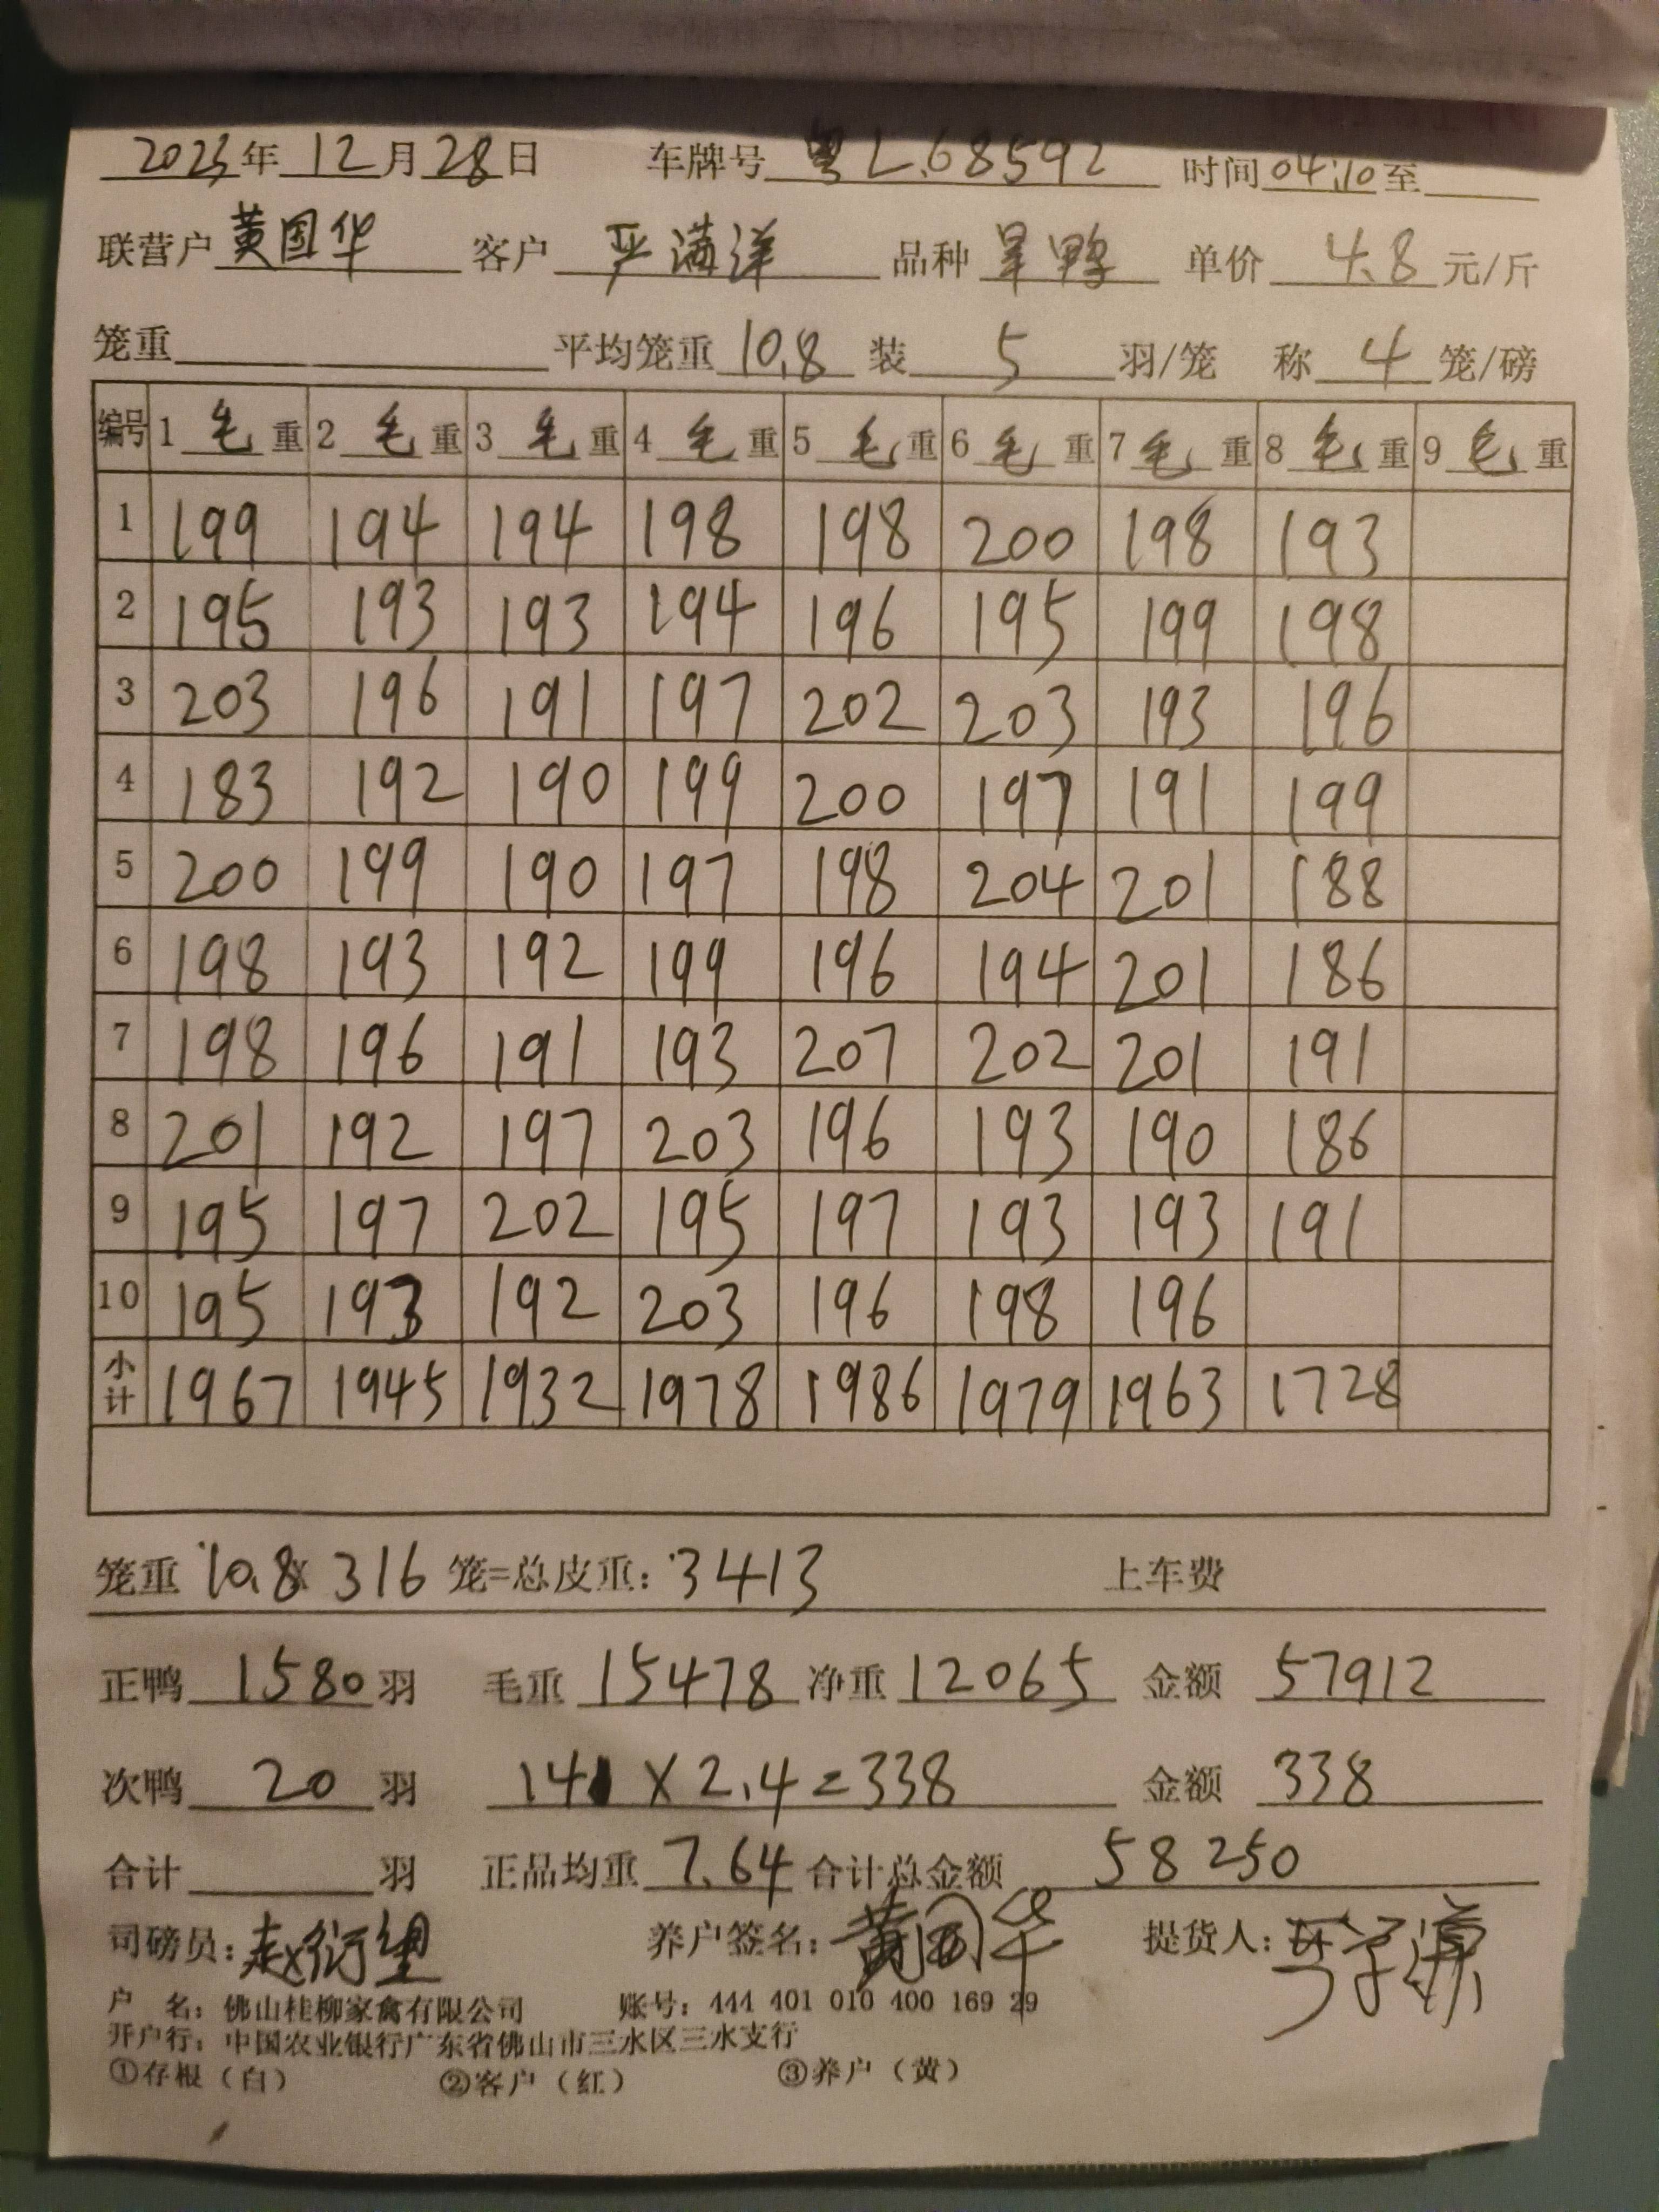 2023年 12月 28日 车牌号 粤L.68592 时间 04:10 至
联营户 黄国华 客户 严满洋 品种 旱鸭 单价 4.8 元/斤
笼重 平均笼重 10.8 装 5 羽/笼 称 4 笼/磅
编号 1 毛 重 2 毛 重 3 毛 重 4 毛 重 5 毛 重 6 毛 重 7 毛 重 8 毛 重 9 毛 重
1 199 194 194 198 198 200 198 193
2 195 193 193 194 196 195 199 198
3 203 196 191 197 202 203 193 196
4 183 192 190 199 200 197 191 199
5 200 199 190 197 198 204 201 188
6 198 193 192 199 196 194 201 186
7 198 196 191 193 207 202 201 191
8 201 192 197 203 196 193 190 186
9 195 197 202 195 197 193 193 191
10 195 193 192 203 196 198 196
小计 1967 1945 1932 1978 1986 1979 1963 1728
笼重 10.8x 316 笼=总皮重: 3413 上车费
正鸭 1580 羽 毛重 15478 净重 12065 金额 57912
次鸭 20 羽 141 X 2.4=338 金额 338
合计 羽 正品均重 7.64 合计总金额 58250
司磅员: 赵衍 养户签名: 黄国华 提货人:
户 名: 佛山桂柳家禽有限公司 账号: 444 401 010 400 169 29
开户行: 中国农业银行广东省佛山市三水区三水支行
①存根（白） ②客户（红） ③养户（黄）